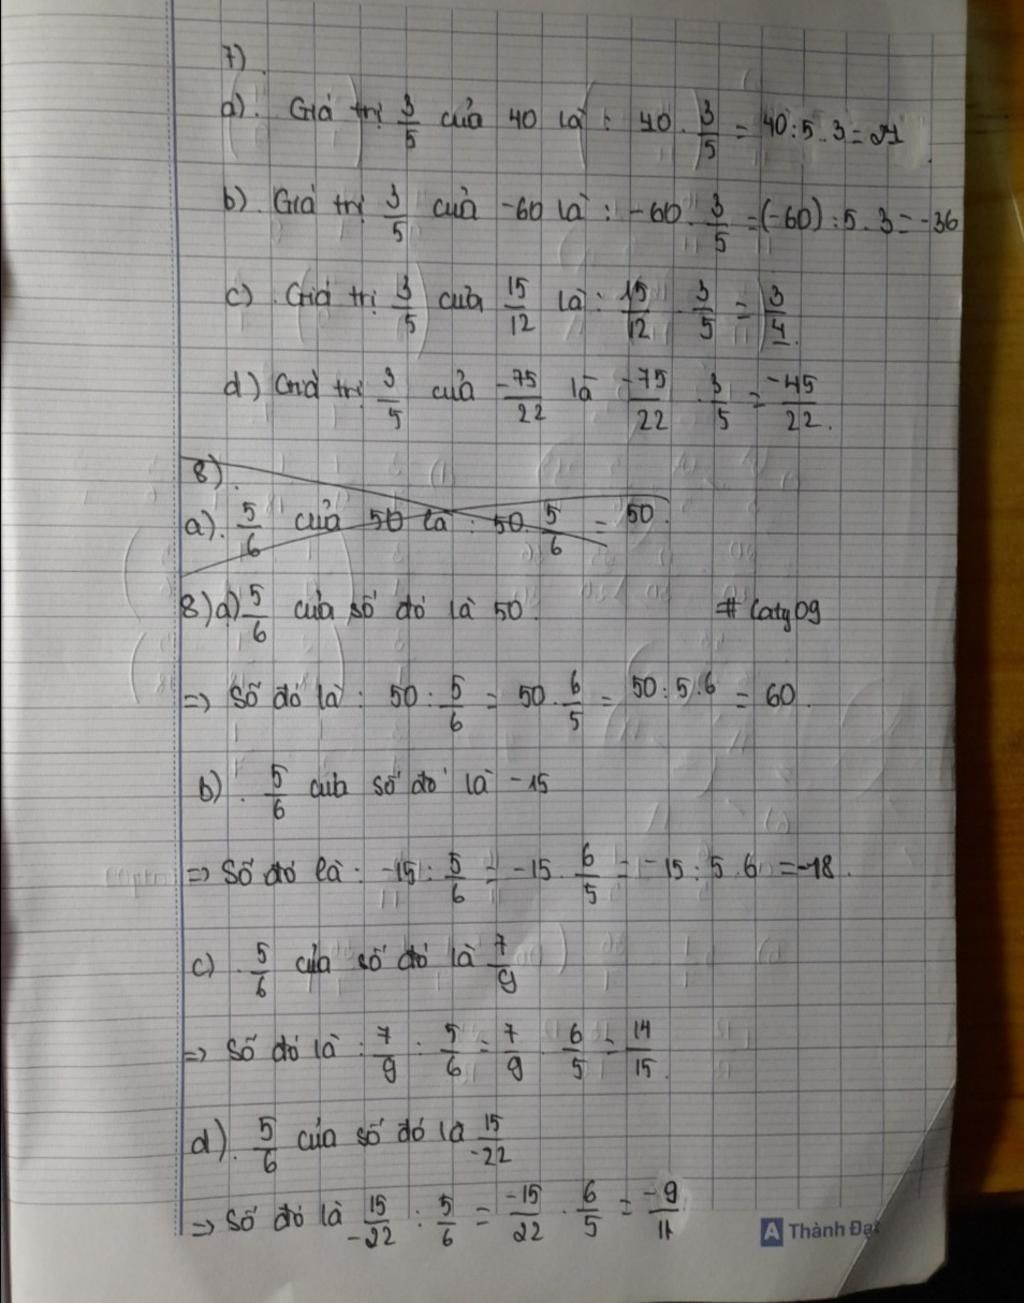 7)
a). Giá trị 3/5 của 40 là : 40 . 3/5 = 40 : 5 . 3 = 24
b). Giá trị 3/5 của -60 là : -60 . 3/5 = (-60) : 5 . 3 = -36
c). Giá trị 3/5 của 15/12 là : 15/12 . 3/5 = 3/4.
d) Giá trị 3/5 của -75/22 là -75/22 . 3/5 = -45/22.
8).
a). 5/6 của 50 là : 50 . 5/6 = 50.
8) a) 5/6 của số đó là 50. #Caty09
=> Số đó là : 50 : 5/6 = 50 . 6/5 = 50 : 5 . 6 = 60.
b). 5/6 của số đó là -15
=> Số đó là : -15 : 5/6 = -15 . 6/5 = -15 : 5 . 6 = -18.
c). 5/6 của số đó là 7/9
=> Số đó là : 7/9 : 5/6 = 7/9 . 6/5 = 14/15.
d). 5/6 của số đó là 15/-22
=> Số đó là 15/-22 : 5/6 = -15/22 . 6/5 = -9/11
A Thành Đạt